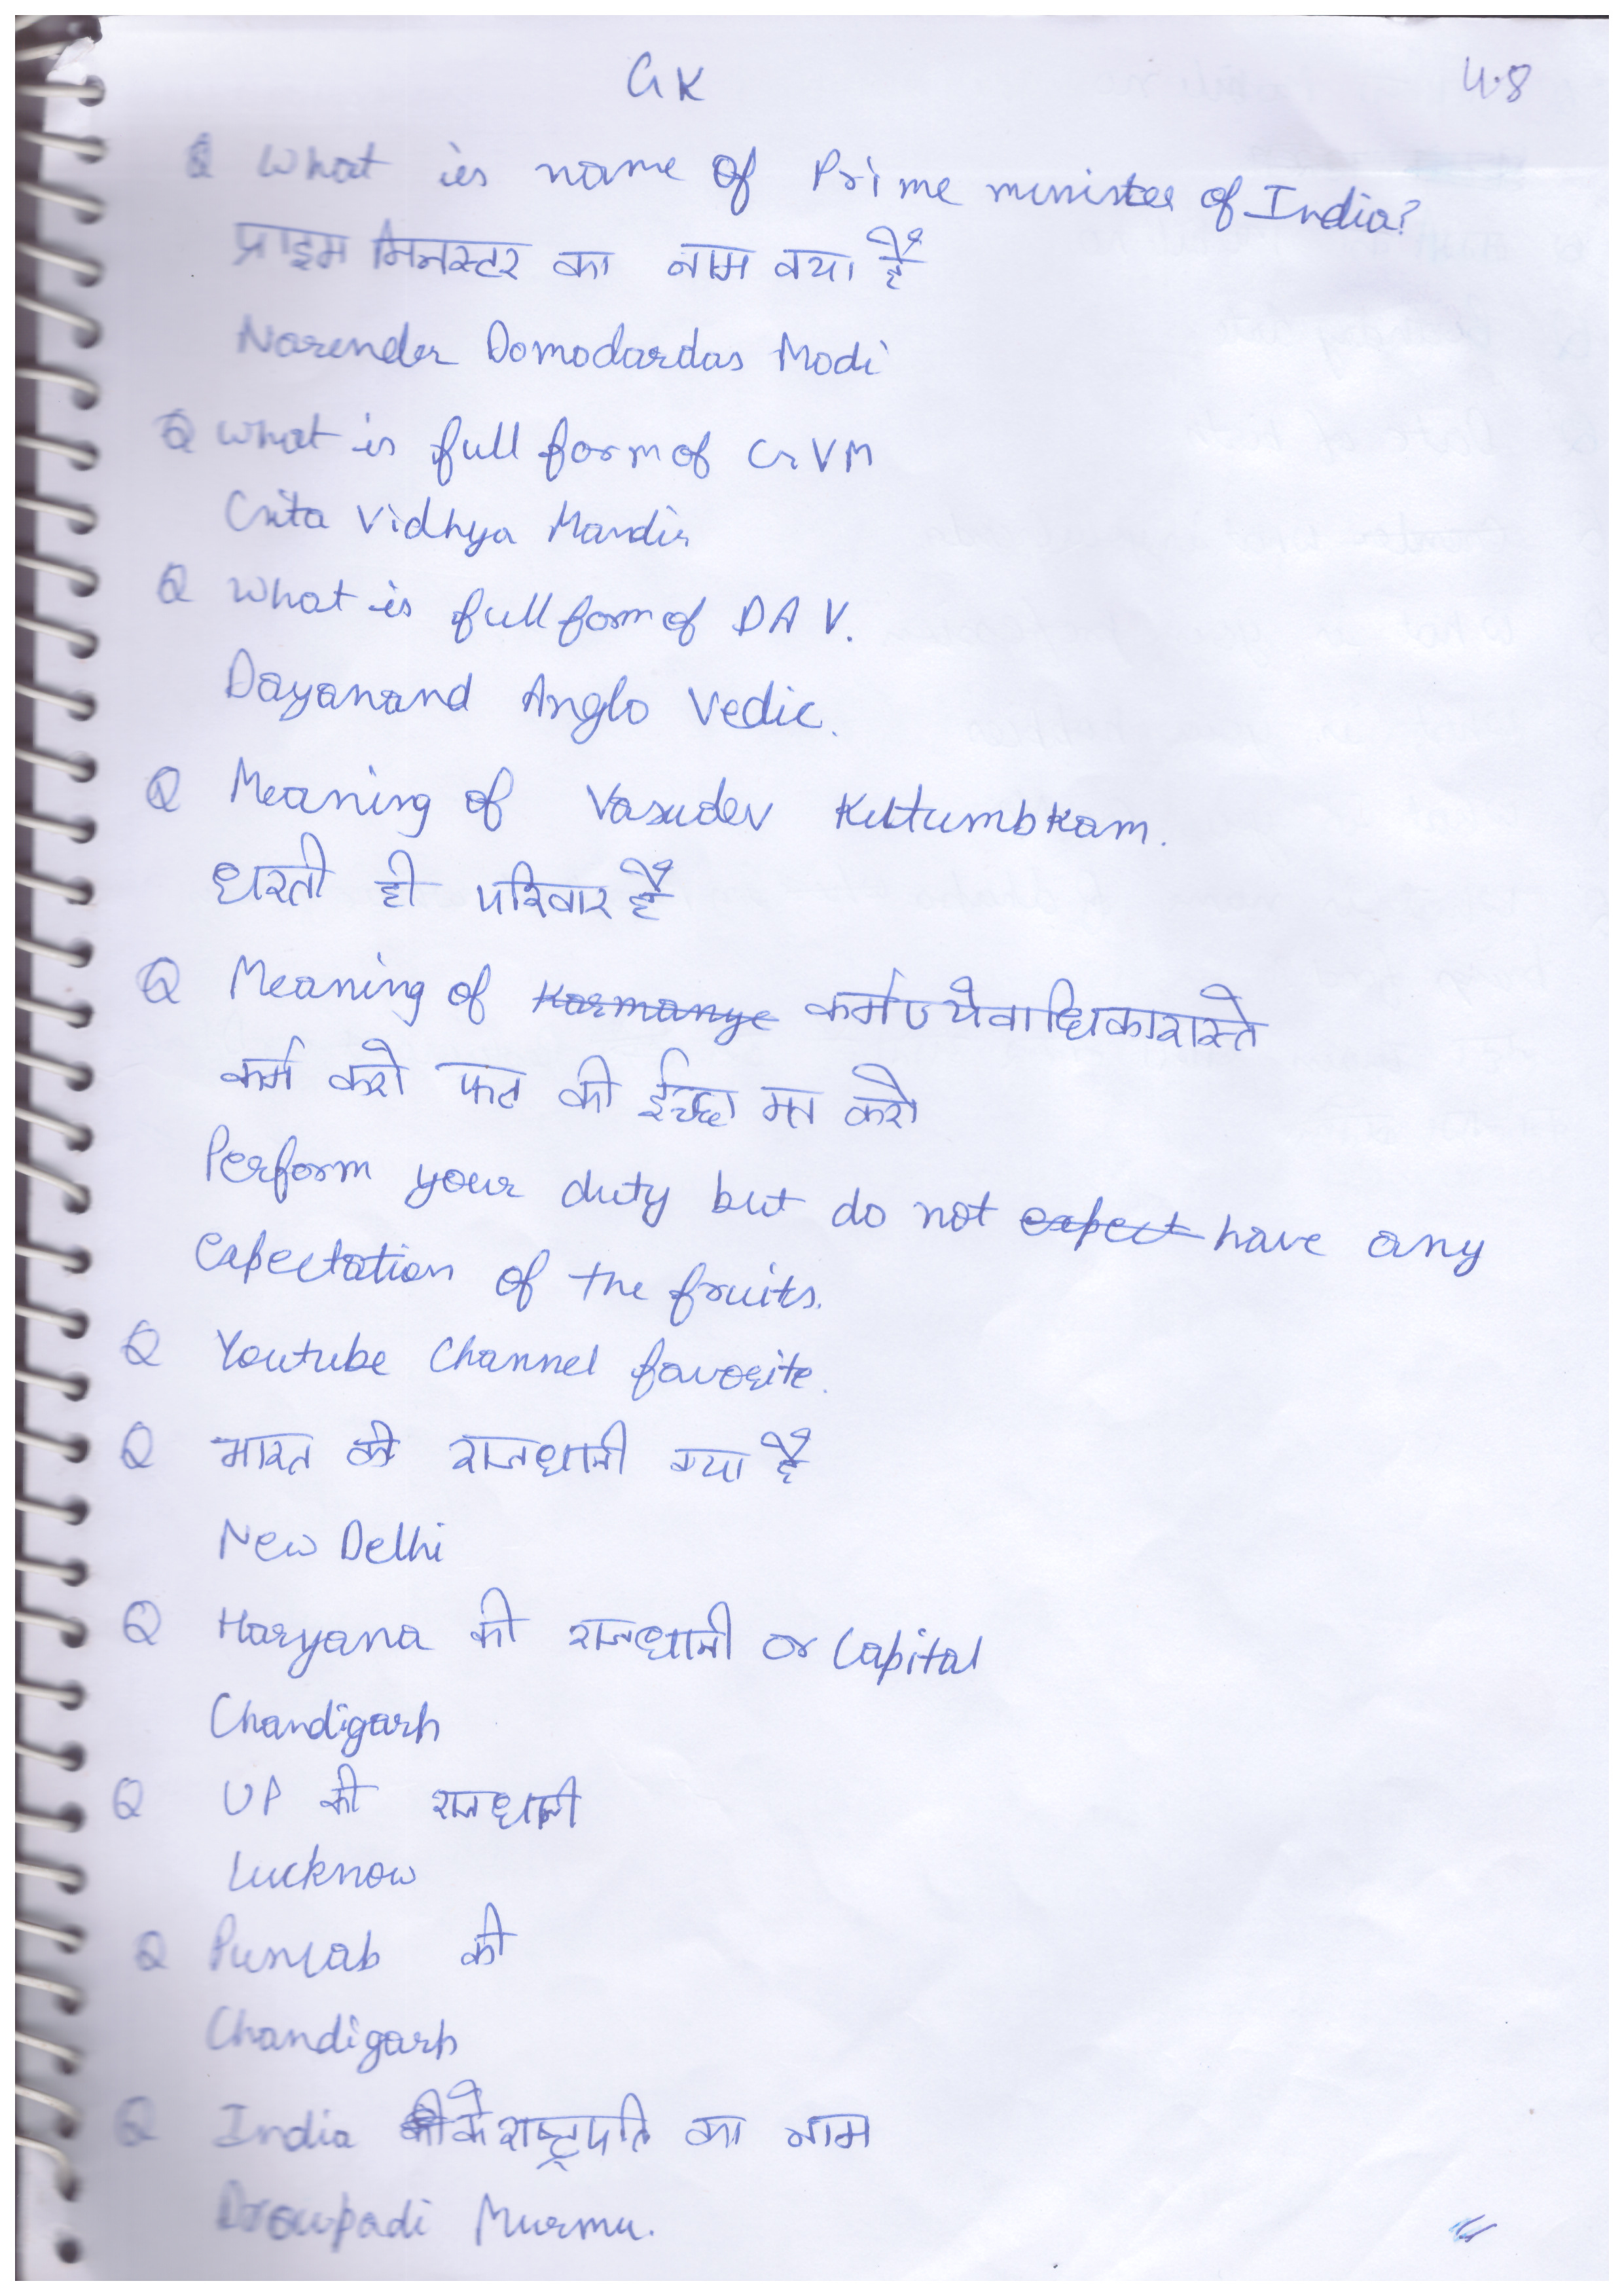 GK
4.8
Q What is name of Prime minister of India?
प्राइम मिनस्टर का नाम क्या है
Narender Domodardas Modi
Q What is full form of GVM
Gita Vidhya Mandir
Q What is full form of DAV.
Dayanand Anglo Vedic.
Q Meaning of Vasudev Kutumbkam.
धरती ही परिवार है
Q Meaning of Karmanye कर्मण्येवाधिकारास्ते
कर्म करो फल की ईच्छा मत करो
Perform your duty but do not expect have any
expectation of the fruits.
Q Youtube Channel favorite.
Q भारत की राजधानी क्या है
New Delhi
Q Haryana की राजधानी or Capital
Chandigarh
Q UP की राजधानी
Lucknow
Q Punjab की
Chandigarh
Q India की के राष्ट्रपति का नाम
Droupadi Murmu.